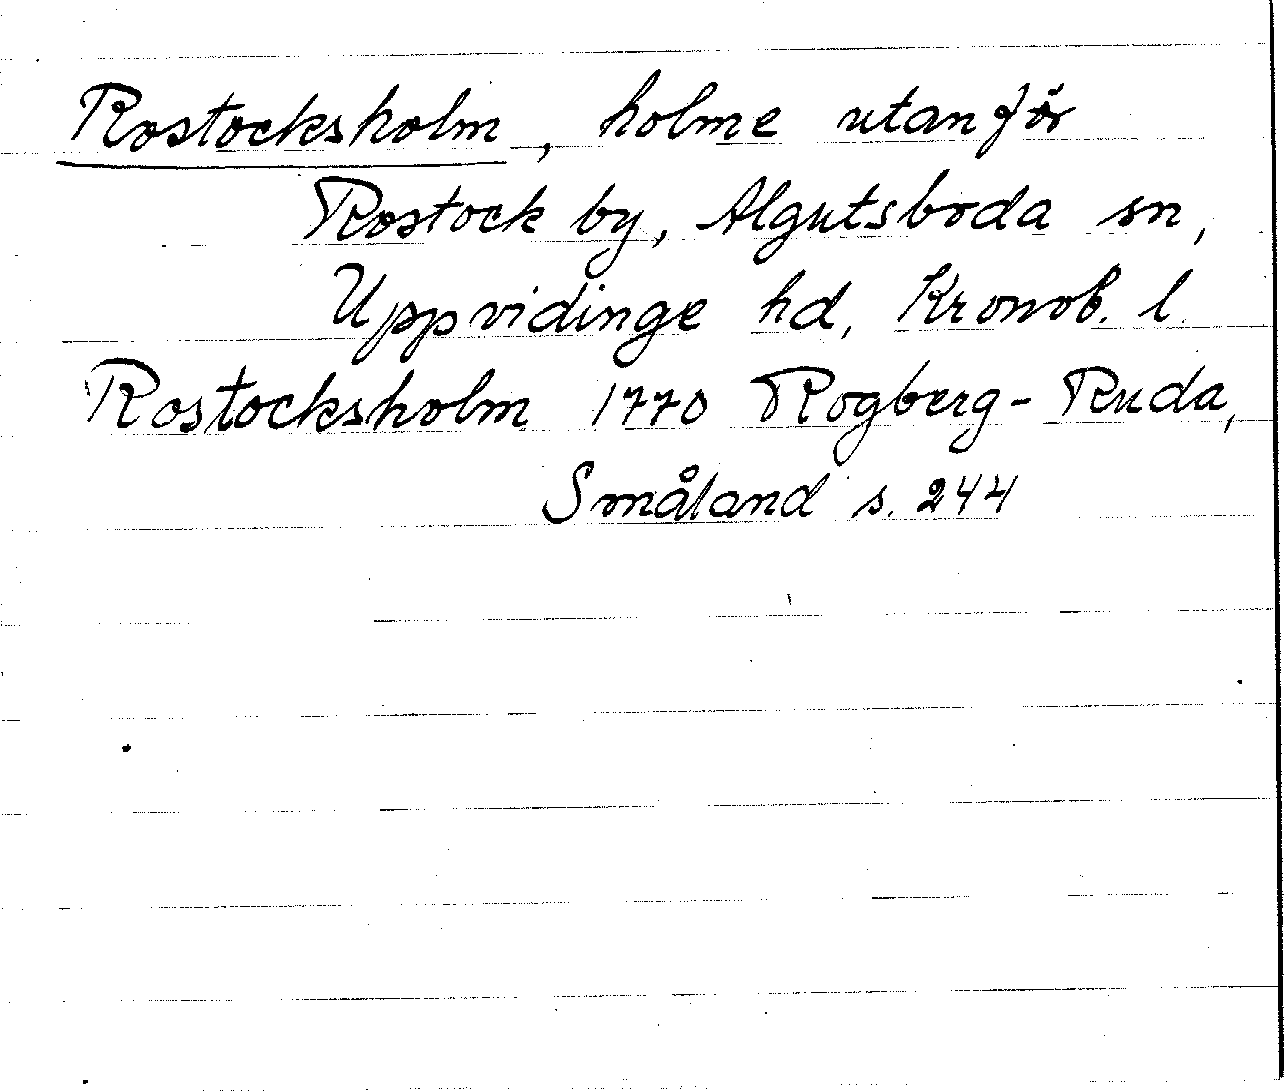 Rostocksholm, holme utanför
Rostock by, Algutsboda sn,
Uppvidinge hd, Kronob. l.
Rostocksholm 1770 Rogberg-Ruda,
Småland s. 244